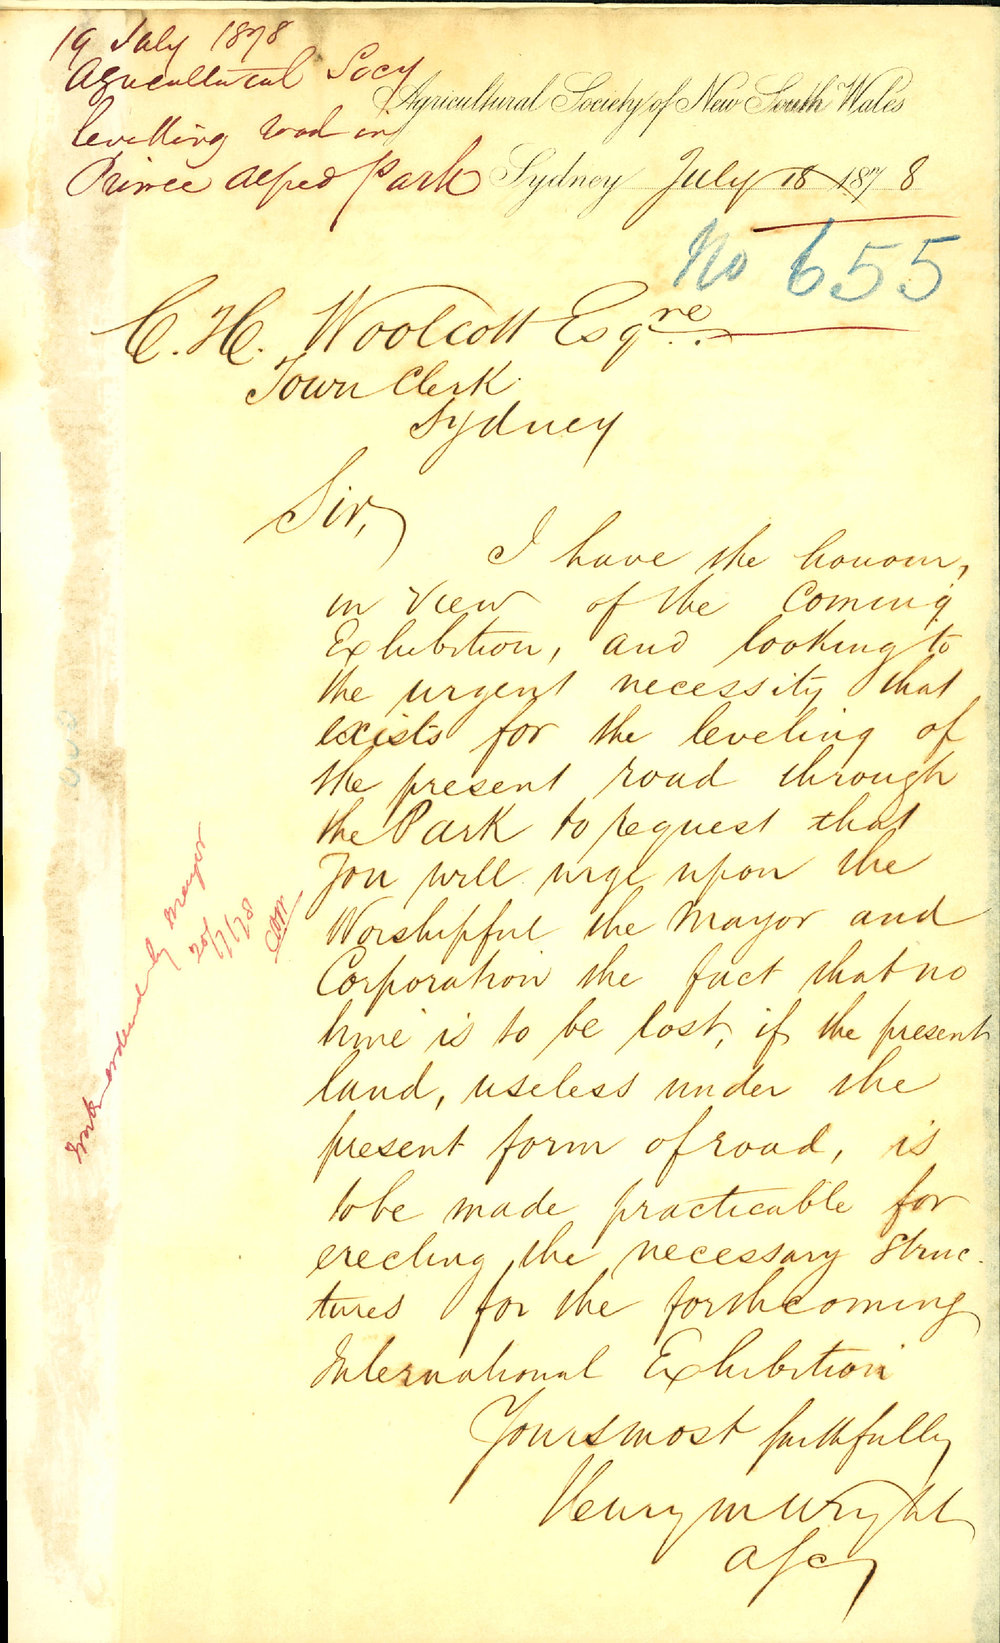 19 July 1878
Agricultural Socy
levelling road in
Prince Alfred Park
Agricultural Society of New South Wales
Sydney July 18 1878
No 655
C. H. Woolcott Esqre
Town Clerk
Sydney
Sir,
I have the honour,
in view of the coming
Exhibition, and looking to
the urgent necessity that
exists for the leveling of
the present road through
the Park to request that
you will urge upon the
Worshipful the Mayor and
Corporation the fact that no
time is to be lost, if the present
land, useless under the
present form of road, is
to be made practicable for
erecting the necessary struc-
tures for the forthcoming
International Exhibition
Yours most faithfully
Henry M Wright
ordered by Mayor
20/7/78
CHW